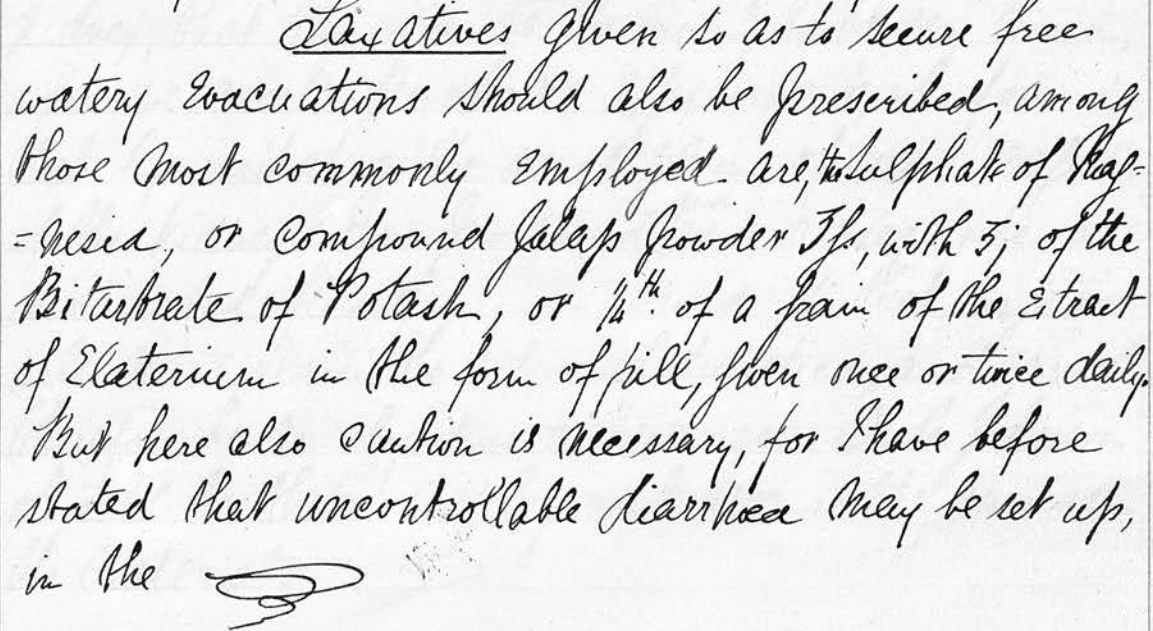 Laxatives given so as to secure free
watery Evacuations should also be prescribed, among
those most commonly Employed are, the Sulphate of Mag-
=nesia, or Compound Jalap powder ʒfs, with ʒj of the
Bitartrate of Potash, or ¼th. of a grain of the Extract
of Elaterium in the form of pill, given once or twice daily.
But here also caution is necessary, for I have before
stated that uncontrollable diarrhoea may be set up,
in the